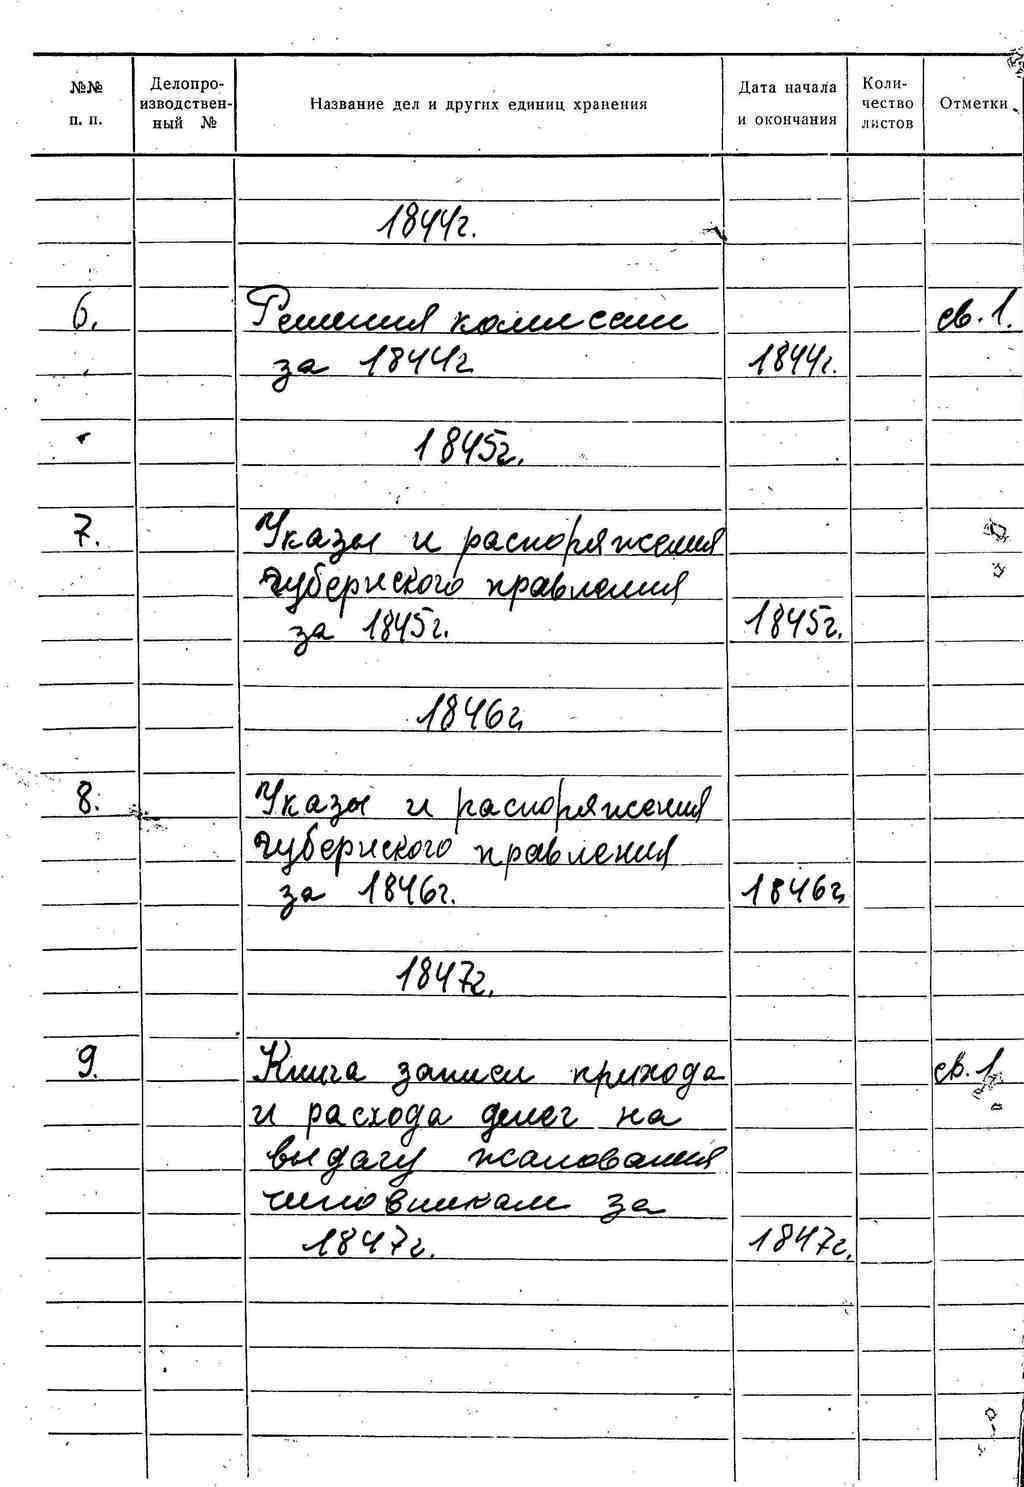 №№ п. п.
Делопро-
изводствен-
ный №
Название дел и других единиц хранения
Дата начала
и окончания
Коли-
чество
листов
Отметки
1844г.
6. Решения комиссии св. 1.
за 1844г 1844г.
1845г.
7. Указы и распоряжения
губернского правления
за 1845г. 1845г.
1846г
8. Указы и распоряжения
губернского правления
за 1846г. 1846г
1847г.
9. Книга записи прихода св. 1
и расхода денег на
выдачу жалования
чиновникам за
1847г. 1847г.